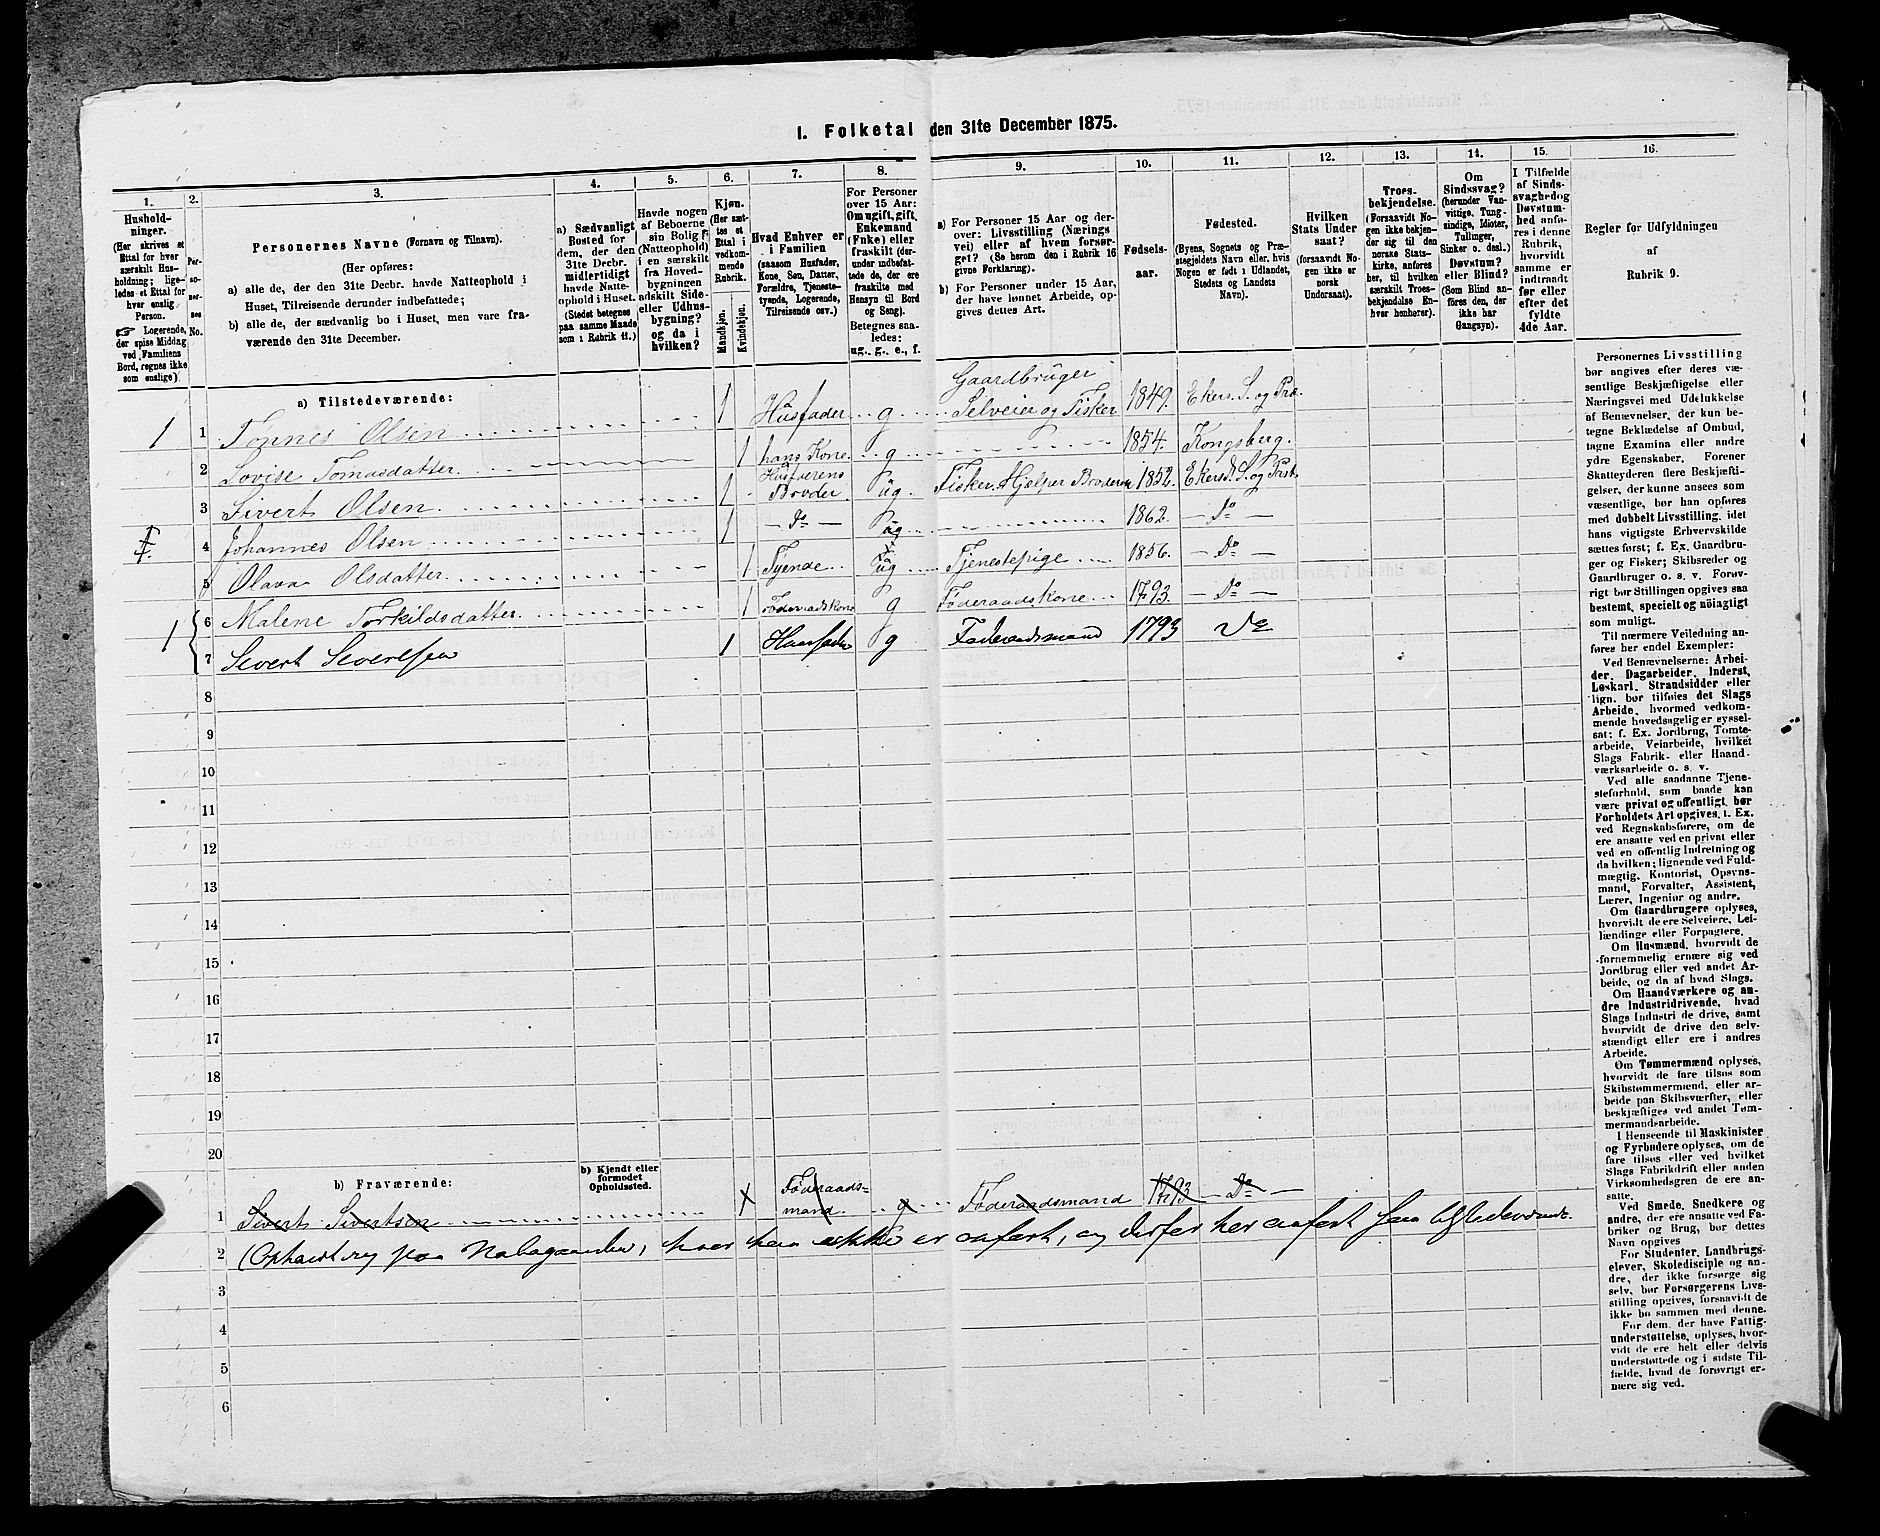 1. Folketal den 31te December 1875.
1. 2. 3. 4. 5. 6. 7. 8. 9. 10. 11. 12. 13. 14. 15. 16.
Hushold-
ninger.
(Her skrives et
Ettal for hver
særskilt Hus-
holdning; lige-
ledes et Ettal for
hver enslig
Person.
☞ Logerende,
der spise Middag
ved Familiens
Bord, regnes ikke
som enslige).
Per-
so-
ner-
nes
No.
Personernes Navne (Fornavn og Tilnavn).
(Her opføres:
a) alle de, der den 31te Decbr. havde Natteophold i
Huset, Tilreisende derunder indbefattede;
b) alle de, der sædvanlig bo i Huset, men vare fra-
værende den 31te December.
a) Sædvanligt
Bosted for
dem, der den
31te Decbr.
midlertidigt
havde Natte-
ophold i Huset.
(Stedet betegnes
paa samme Maade
som i Rubrik 11.)
Havde nogen
af Beboerne
sin Bolig
(Natteophold)
i en særskilt
fra Hoved-
bygningen
adskilt Side-
eller Udhus-
bygning?
og da i
hvilken?
Kjøn.
(Her sæt-
tes et
Ettal i
vedkom-
mende
Rubrik.
Mandkjøn.
Kvindekjøn.
Hvad Enhver er
i Familien
(saasom Husfader,
Kone, Søn, Datter,
Forældre, Tjeneste-
tyende, Logerende,
Tilreisende osv.)
For Personer
over 15 Aar:
Om ugift, gift,
Enkemand
(Enke) eller
fraskilt (der-
under indbefat-
tede de, der ere
fraskilte med
Hensyn til Bord
og Seng).
Betegnes saa-
ledes:
ug., g., e., f.
a) For Personer 15 Aar og der-
over: Livsstilling (Nærings
vei) eller af hvem forsør-
get? (Se herom den i Rubrik 16
givne Forklaring).
b) For Personer under 15 Aar,
der have lønnet Arbeide, op-
gives dettes Art.
Fødsels-
aar.
Fødested.
(Byens, Sognets og Præ-
stegjeldets Navn eller, hvis
Nogen er født i Udlandet,
Stedets og Landets
Navn).
Hvilken
Stats Under
saat?
(forsaavidt No-
gen ikke er
norsk
Undersaat).
Troes-
bekjendelse.
(Forsaavidt No-
gen ikke bekjen-
der sig til den
norske Stats-
kirke, anføres
her, til hvilken
særskilt Troes-
bekjendelse En-
hver henhører).
Om
Sindssvag?
(herunder Van-
vittige, Tung-
sindige, Idioter,
Tullinger,
Sinker o. desl.)
Døvstum?
eller Blind?
(Som Blind an-
føres den, der
ikke har
Gangsyn).
I Tilfælde
af Sinds-
svaghed og
Døvstum-
hed anfø-
res i denne
Rubrik,
hvorvidt
samme er
indtraadt
før eller
efter det
fyldte
4de Aar.
Regler for Udfyldningen
af
Rubrik 9.
a) Tilstedeværende:
1 1 Tønnes Olsen 1 Husfader g Gaardbruger Selveier og Fisker 1849. Ekers. S. og Præ.
2 Lovise Tomasdatter 1 hans Kone g 1854. Kongsberg.
3 Sivert Olsen 1 Husfaderens Broder ug. Fisker. Hjelper Broderen 1852. Ekersd. S. og Prst.
4 Johannes Olsen 1 — Do — ug 1862. — Do —
5 Olava Olsdatter 1 Tyende ug Tjenestepige 1856. — Do —
1 6 Malene Torkildsdatter 1 Føderaadskone g Føderaadskone 1793. — Do —
7 Sivert Sivertsen 1 Huusfader g Føderaadsmand 1793 Do
8
9
10
11
12
13
14
15
16
17
18
19
20
b) Fraværende:
b) Kjendt eller
formodet
Opholdssted.
1 Sivert Sivertsen Føderaads-mand. g Føderaadsmand 1793 — Do —
2 (Opholdt sig paa Nabogaarden, hvor han ikke er anført, og derfor her anført som tilstedeværende.
3
4
5
6
Personernes Livsstilling
bør angives efter deres væ-
sentlige Beskjæftigelse eller
Næringsvei med Udelukkelse
af Benævnelser, der kun be-
tegne Beklædelse af Ombud,
tagne Examina eller andre
ydre Egenskaber. Forener
Skatteyderen flere Beskjæfti-
gelser, der kunne ansees som
væsentlige, bør han opføres
med dobbelt Livsstilling, idet
hans vigtigste Erhvervskilde
sættes først; f. Ex. Gaardbru-
ger og Fisker; Skibsreder og
Gaardbruger o. s. v. Forøv-
rigt bør Stillingen opgives saa
bestemt, specielt og nøiagtigt
som muligt.
Til nærmere Veiledning an-
føres her endel Exempler:
Ved Benævnelserne: Arbei-
der, Dagarbeider, Inderst,
Løskarl, Strandsidder eller
lign. bør tilføies det Slags
Arbeide, hvormed vedkom-
mende hovedsagelig er syssel-
sat; f. Ex. Jordbrug, Tomte-
arbeide, Veiarbeide, hvilket
Slags Fabrik- eller Haand-
værksarbeide o. s. v.
Ved alle saadanne Tjene-
steforhold, som baade kan
være privat og offentligt, bør
Forholdets Art opgives, t. Ex.
ved Regnskabsførere, om de
ere ansatte ved en privat eller
ved en offentlig Indretning og
da hvilken; lignende ved Fuld-
mægtig, Kontorist, Opsyns-
mand, Forvalter, Assistent,
Lærer, Ingeniør og andre.
Om Gaardbrugere oplyses,
hvorvidt de ere Selveiere, Lei-
lændinge eller Forpagtere.
Om Husmænd, hvorvidt de
fornemmelig ernære sig ved
Jordbrug eller ved andet Ar-
beide, og da af hvad Slags.
Om Haandværkere og an-
dre Industridrivende, hvad
Slags Industri de drive, samt
hvorvidt de drive den selv-
stændigt eller ere i andres
Arbeide.
Om Tømmermænd oplyses,
hvorvidt de fare tilsøs som
Skibstømmermænd, eller ar-
beide paa Skibsværfter, eller
beskjæftiges ved andet Tøm-
mermandsarbeide.
I Henseende til Maskinister
og Fyrbødere oplyses, om de
fare tilsøs eller ved hvilket
Slags Fabrikdrift eller anden
Virksomhedsgren de ere an-
satte.
Ved Smede, Snedkere og
andre, der ere ansatte ved Fa-
briker og Brug, bør dettes
Navn opgives
For Studenter, Landbrugs-
elever, Skoledisciple og an-
dre, der ikke forsørge sig
selv, bør Forsørgerens Livs-
stilling opgives, forsaavidt de
ikke bo sammen med denne.
For dem, der have Fattig-
understøttelse, oplyses, hvor-
vidt de ere helt eller delvis
understøttede og i sidste Til-
fælde, hvad de forøvrigt er-
nære sig ved.